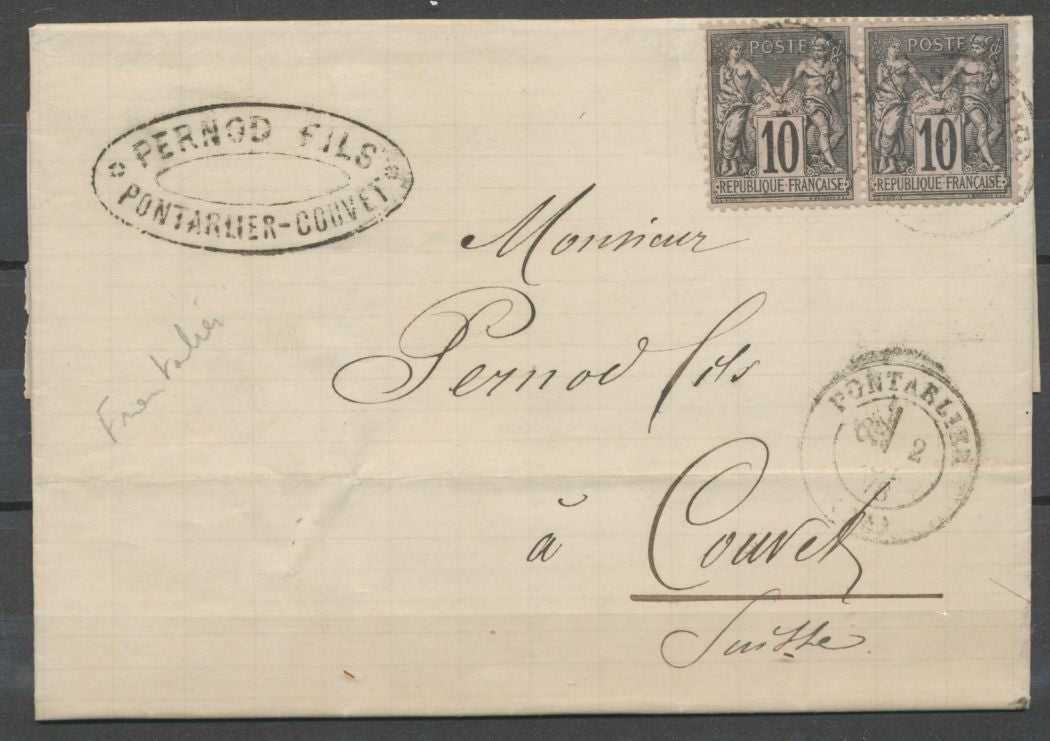 POSTE POSTE
10 10
REPUBLIQUE FRANÇAISE REPUBLIQUE FRANÇAISE
PERNOD FILS
PONTARLIER-COUVET
Monsieur
Pernod fils
à Couvet
Suisse
Frontalier
PONTARLIER
2
78